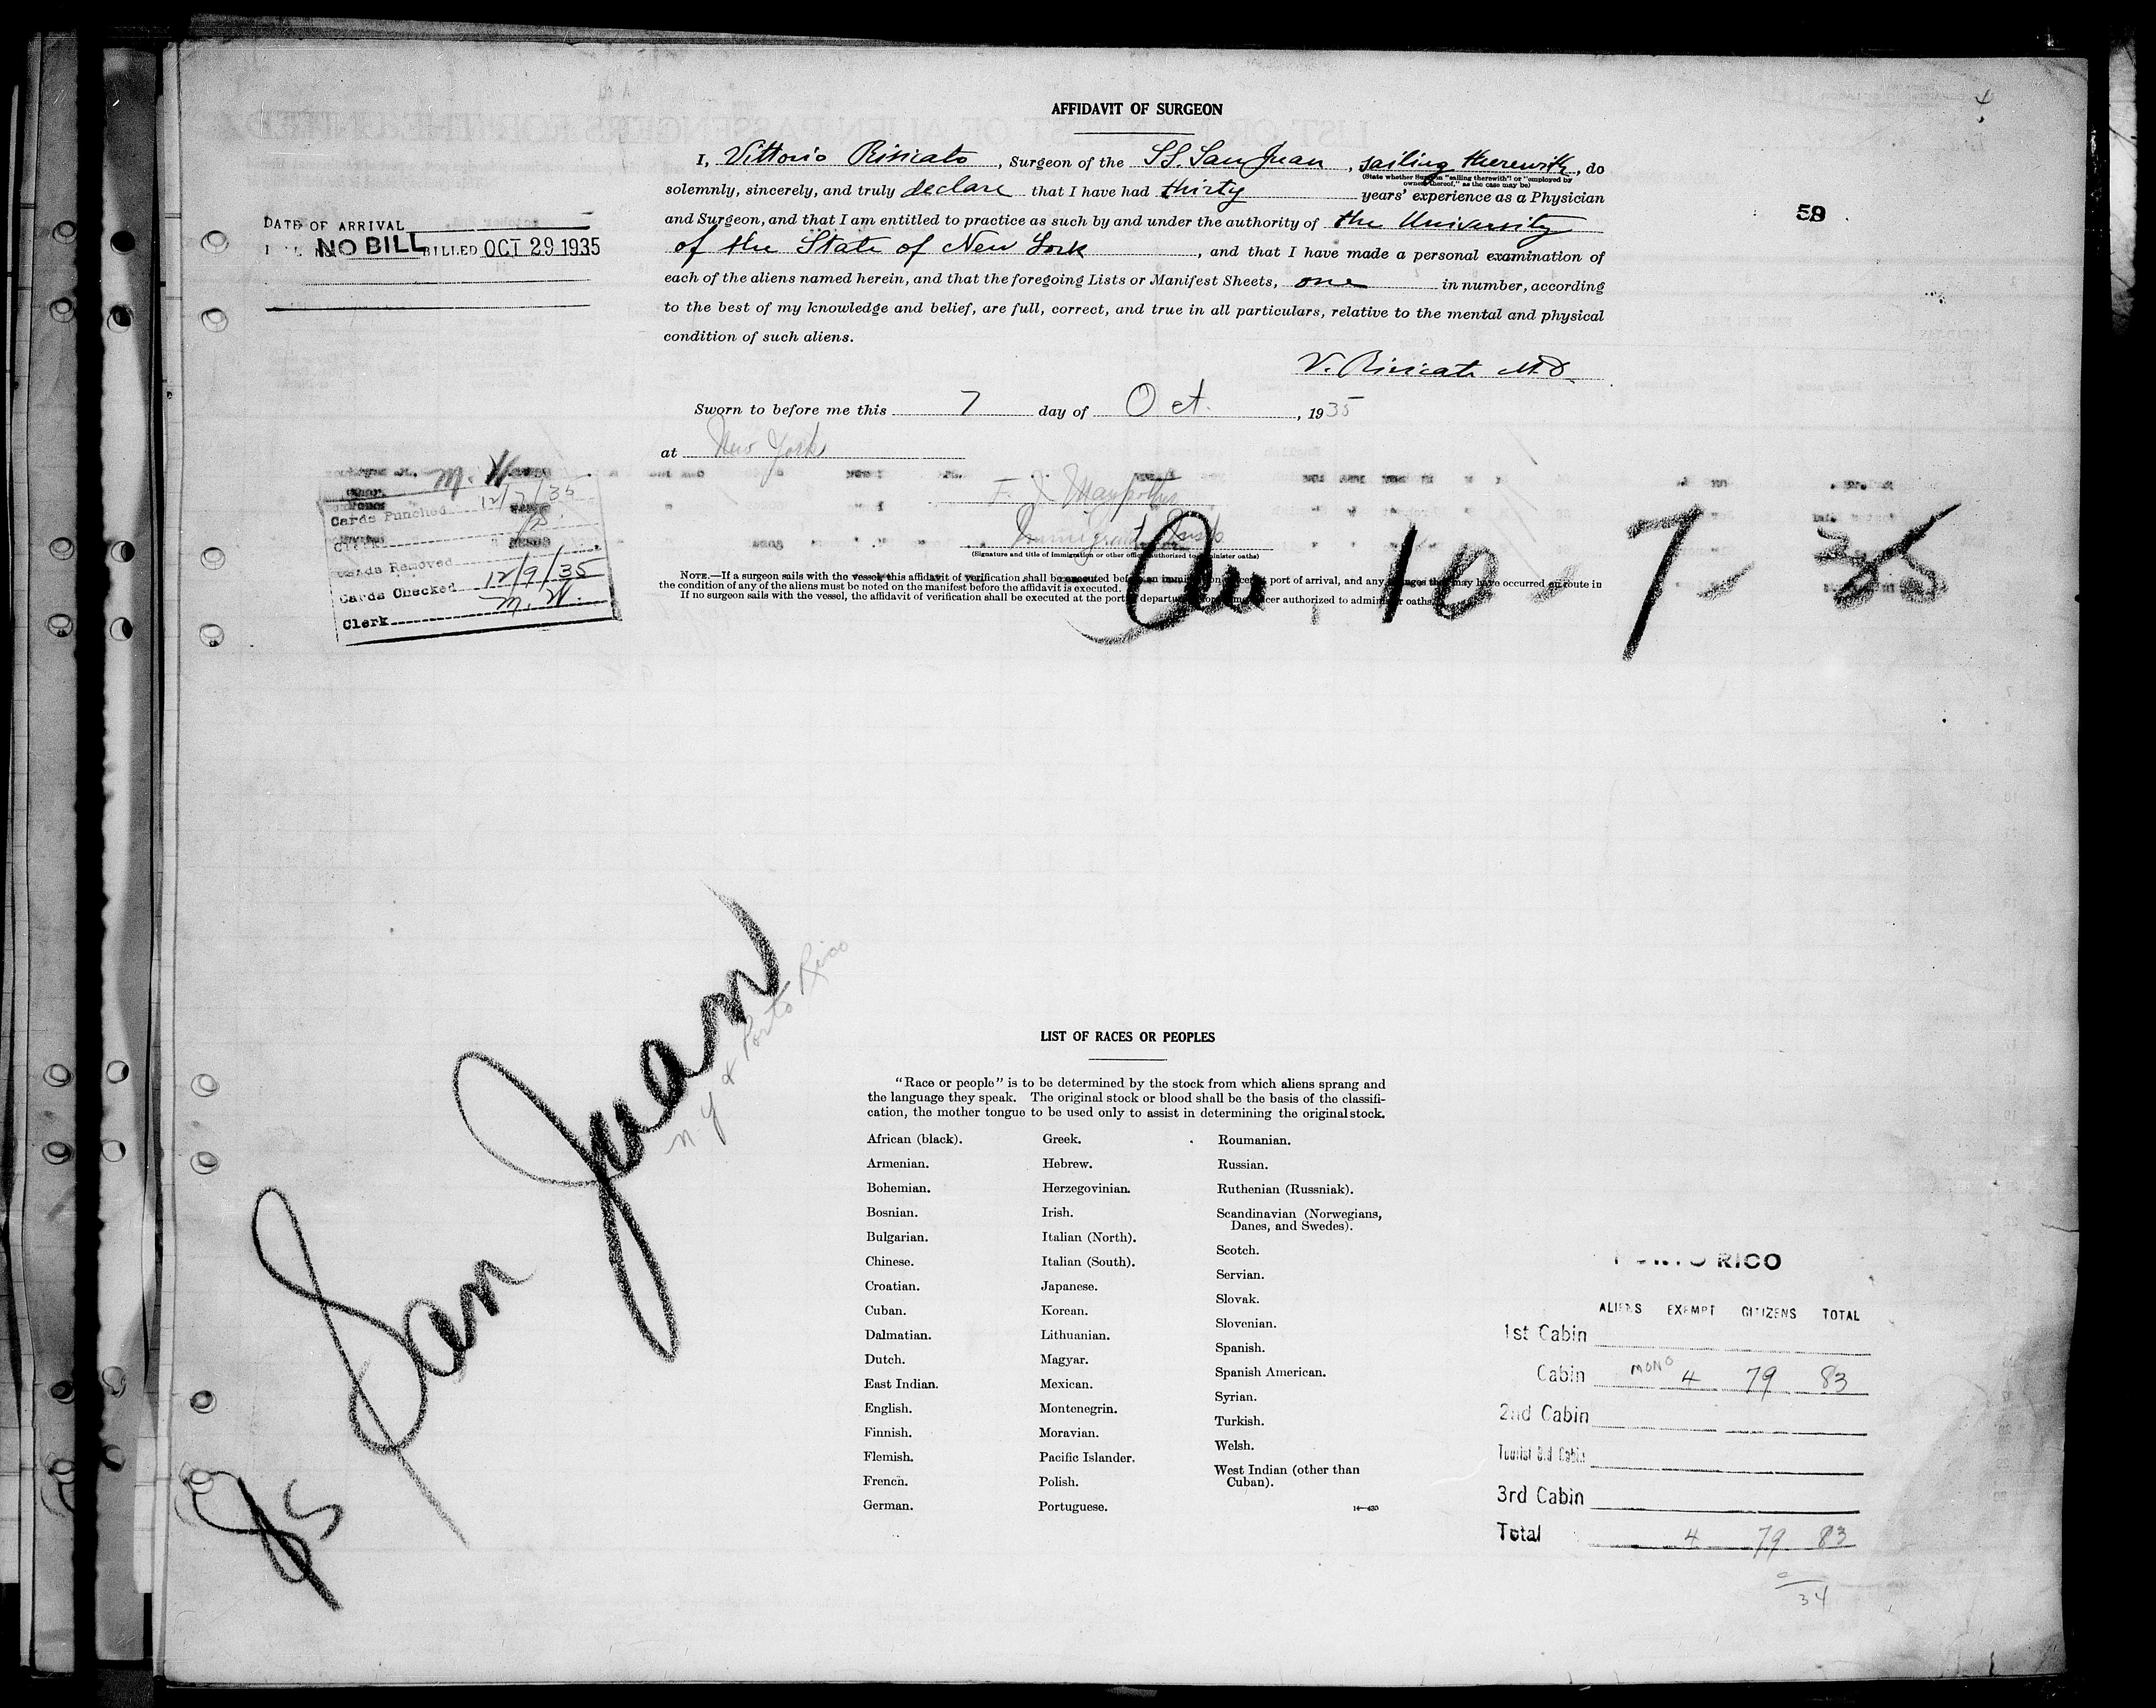 AFFIDAVIT OF SURGEON
I, Vittorio Risicato, Surgeon of the SS. San Juan, sailing therewith, do
(State whether Surgeon "sailing therewith" or "employed by
owners thereof," as the case may be)
solemnly, sincerely, and truly declare that I have had thirty years' experience as a Physician
and Surgeon, and that I am entitled to practice as such by and under the authority of the University
of the State of New York, and that I have made a personal examination of
each of the aliens named herein, and that the foregoing Lists or Manifest Sheets, one in number, according
to the best of my knowledge and belief, are full, correct, and true in all particulars, relative to the mental and physical
condition of such aliens.
V. Risicato M.D.
Sworn to before me this 7 day of Oct., 1935
at New York
(Signature and title of immigration or other officer authorized to administer oaths)
NOTE.—If a surgeon sails with the vessel, this affidavit of verification shall be executed before an immigration officer port of arrival, and any changes that may have occurred en route in
the condition of any of the aliens must be noted on the manifest before the affidavit is executed.
If no surgeon sails with the vessel, the affidavit of verification shall be executed at the port departure before officer authorized to administer oaths.
DATE OF ARRIVAL
NO BILL BILLED OCT 29 1935
58
M. W.
12/7/35
Cards Punched
Clerk
Cards Removed
Cards Checked 12/9/35
Clerk M. W.
10-7-35
SS San Juan
N Y & Porto Rico
LIST OF RACES OR PEOPLES
"Race or people" is to be determined by the stock from which aliens sprang and
the language they speak. The original stock or blood shall be the basis of the classifi-
cation, the mother tongue to be used only to assist in determining the original stock.
African (black).
Armenian.
Bohemian.
Bosnian.
Bulgarian.
Chinese.
Croatian.
Cuban.
Dalmatian.
Dutch.
East Indian.
English.
Finnish.
Flemish.
French.
German.
Greek.
Hebrew.
Herzegovinian.
Irish.
Italian (North).
Italian (South).
Japanese.
Korean.
Lithuanian.
Magyar.
Mexican.
Montenegrin.
Moravian.
Pacific Islander.
Polish.
Portuguese.
Roumanian.
Russian.
Ruthenian (Russniak).
Scandinavian (Norwegians,
Danes, and Swedes).
Scotch.
Servian.
Slovak.
Slovenian.
Spanish.
Spanish American.
Syrian.
Turkish.
Welsh.
West Indian (other than
Cuban).
PORTO RICO
ALIENS EXEMPT CITIZENS TOTAL
1st Cabin
Cabin MONO 4 79 83
2nd Cabin
Tourist 3rd Cabin
3rd Cabin
Total 4 79 83
34